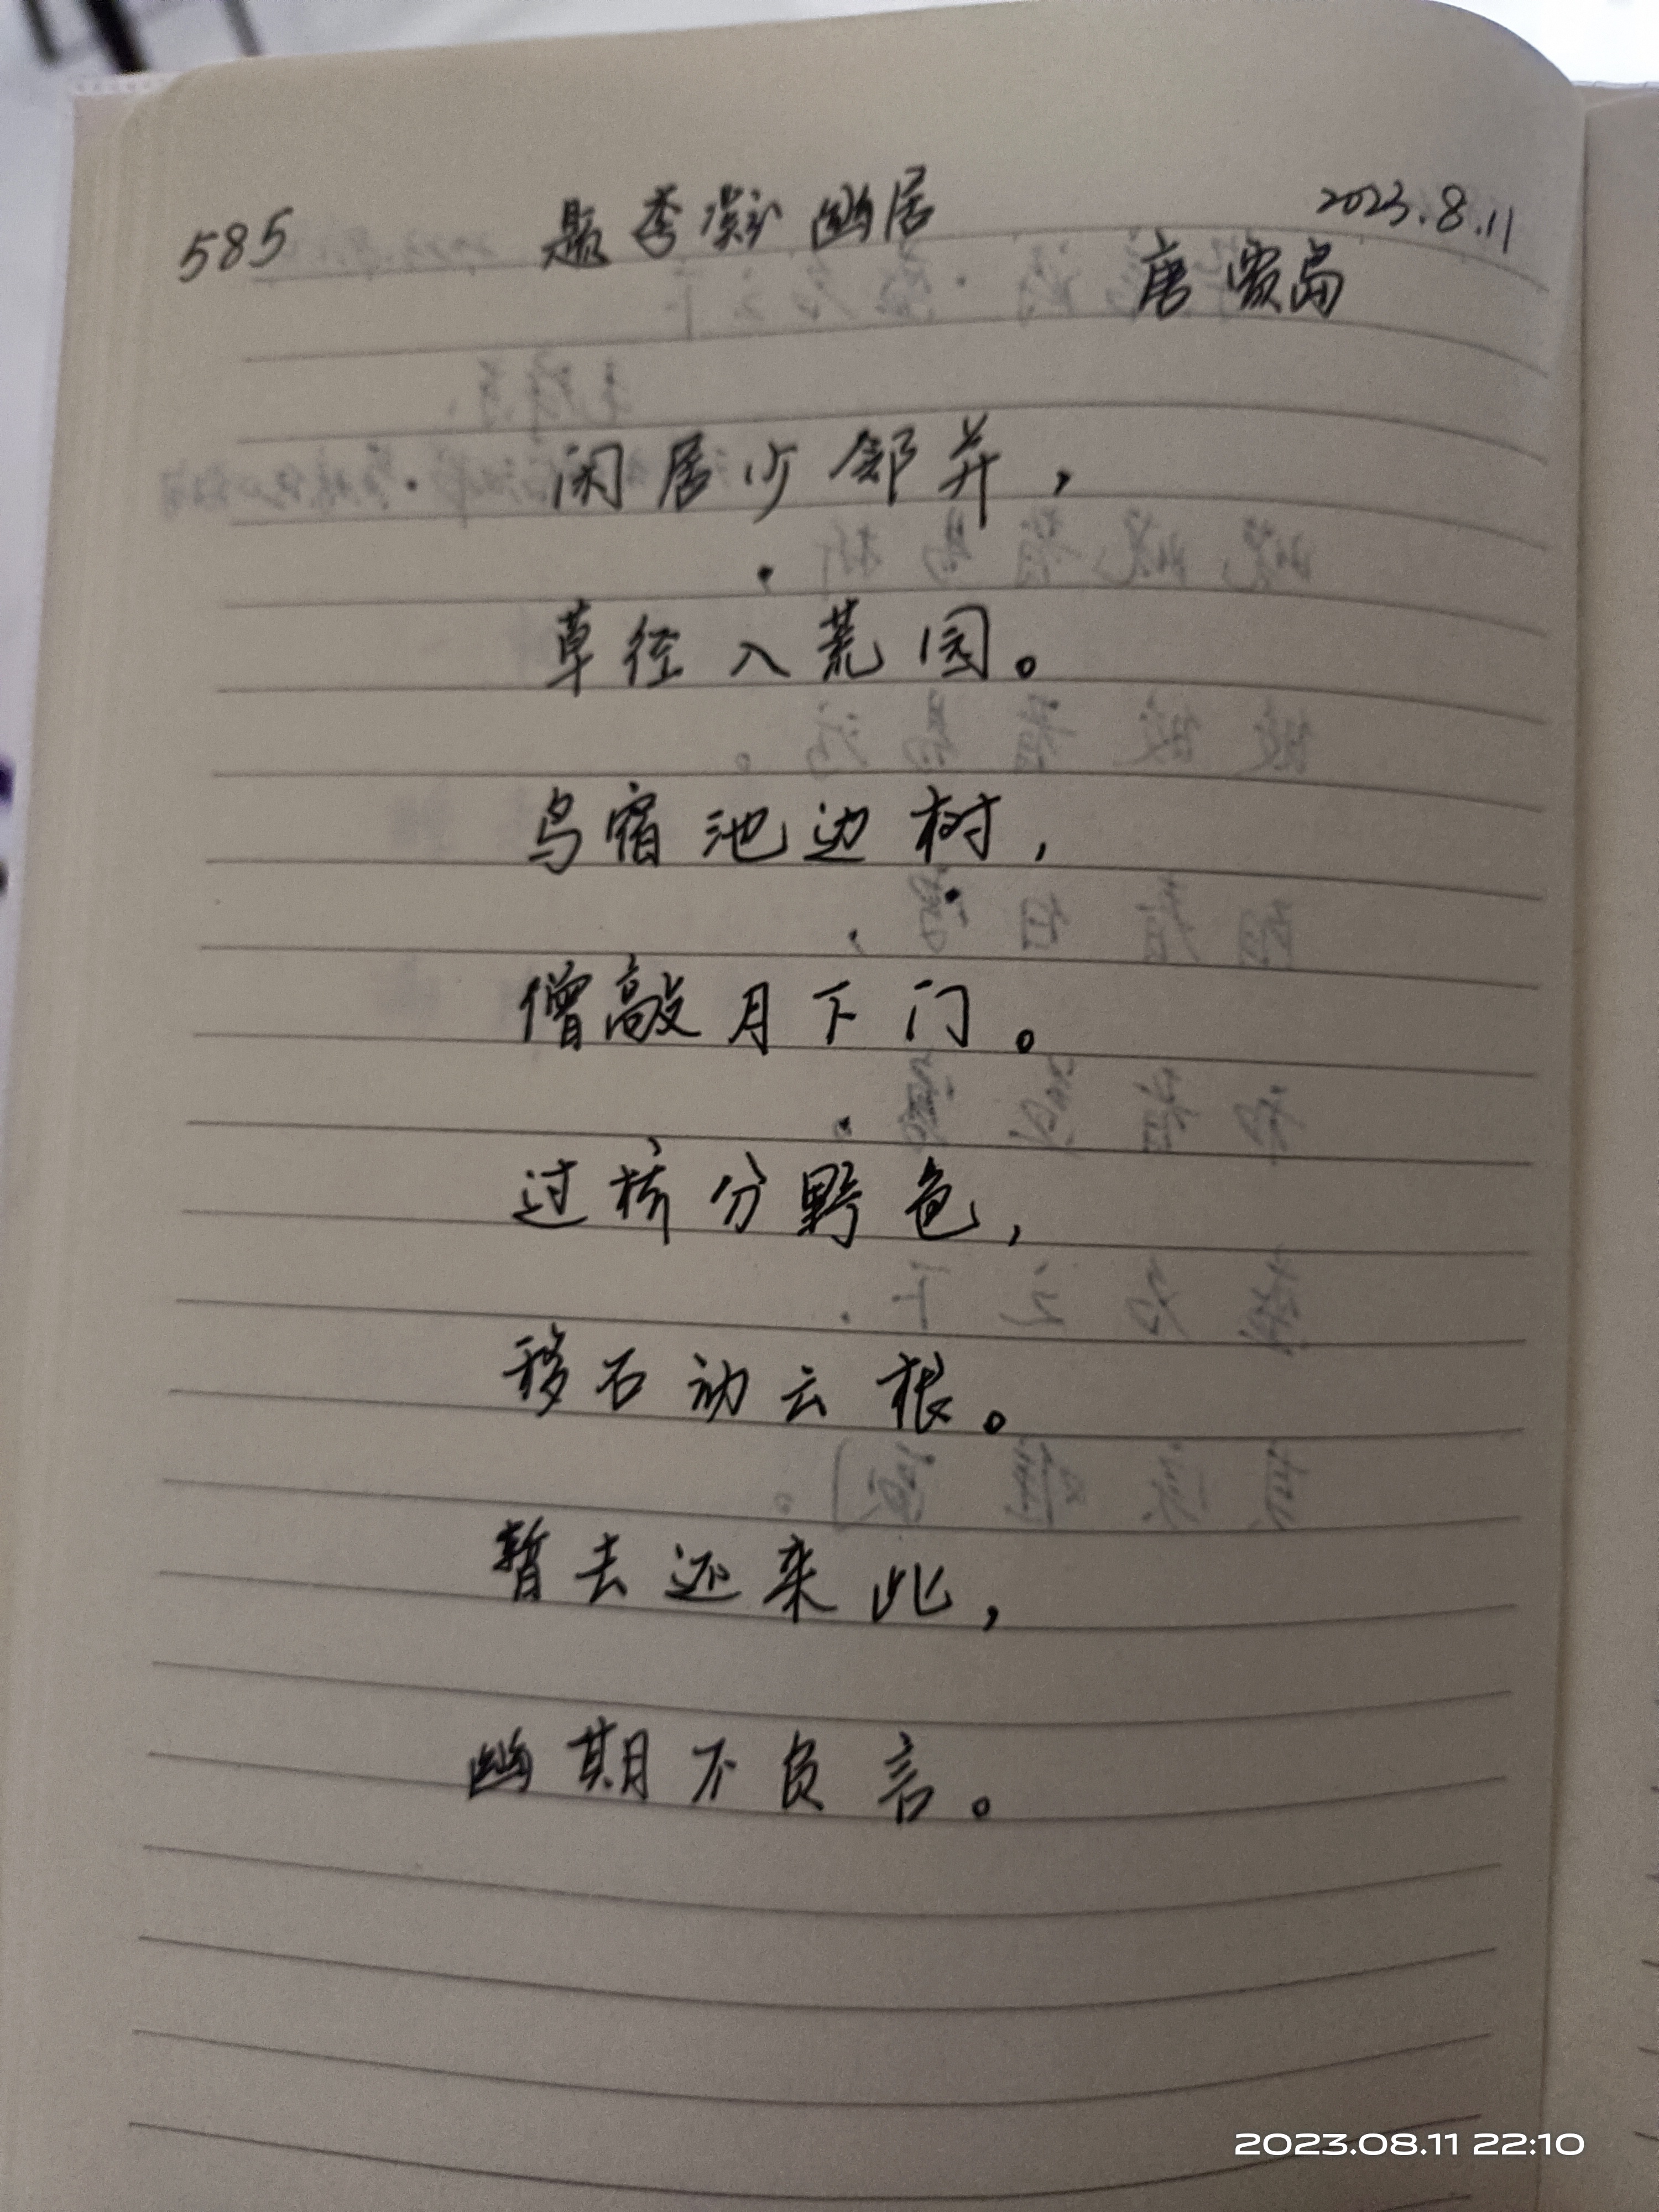 585 题李凝幽居 2023.8.11
唐 贾岛
闲居少邻并,
草径入荒园。
鸟宿池边树,
僧敲月下门。
过桥分野色,
移石动云根。
暂去还来此,
幽期不负言。
2023.08.11 22:10